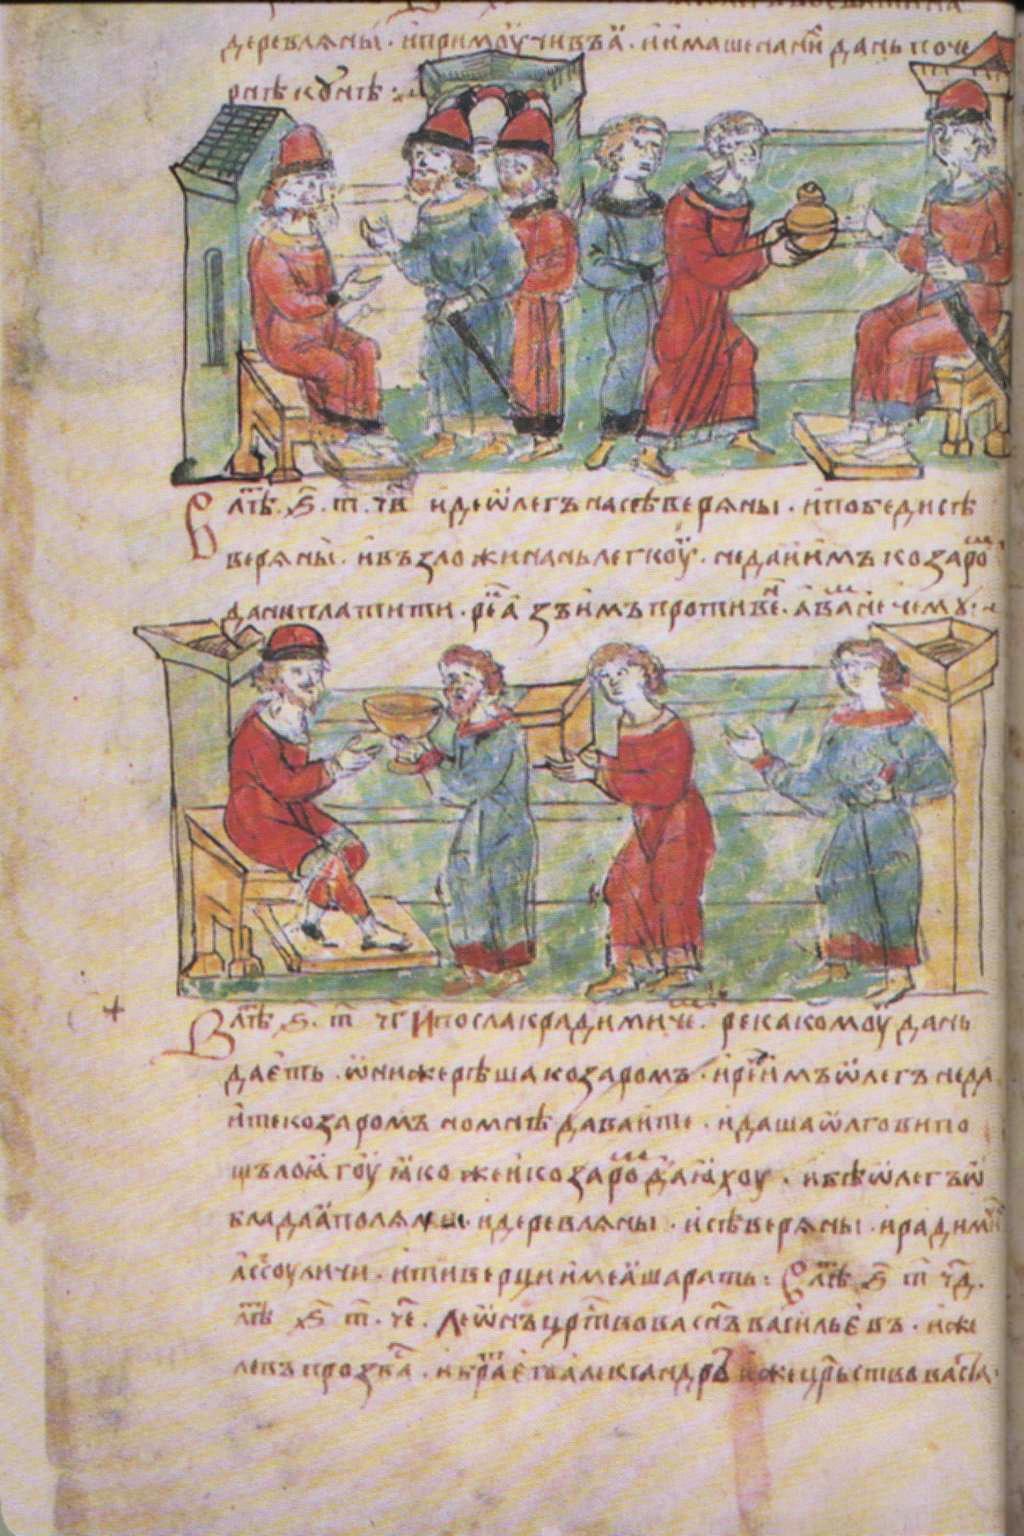 деревлѧны · и примоучивъ ѧ · и имаше на ни дань по че
рнѣ кунѣ :
В лѣт҃ · ҂ѕ҃ · т҃ · ч҃в иде ѡлегъ на сѣверѧны · и победи сѣ
верѧны · и възложи на нь легкоу · не даи имъ козаро
дани платити · азъ имъ противе · а вам нечему :
В лѣт҃ ҂ѕ҃ · т҃ ч҃г И посла к радимиче · река комоу дань
даеть · ѡни же рѣша козаромъ · и рче имъ ѡлегъ не да
ите козаромъ но мнѣ даваите · и даша ѡлгови по
щълоѧгоу ꙗко же и козаро даꙗхоу · и бѣ ѡлегъ ѡ
бладаꙗ полѧны · и деревлѧны · и сѣверѧны · и радими
а с оуличи · и тиверци имеꙗше рать : В лѣт҃ ҂ѕ҃ т҃ ч҃д ·
лѣт҃ ҂ѕ҃ т҃ · ч҃е · Леѡнъ црⷭ҇твова сн҃ъ васильевъ · иже
левъ прозвасѧ · и братъ его александръ иже црⷭ҇ьствоваста ·